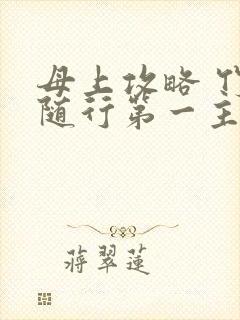 母上攻略
随行第一主
蒋翠莲